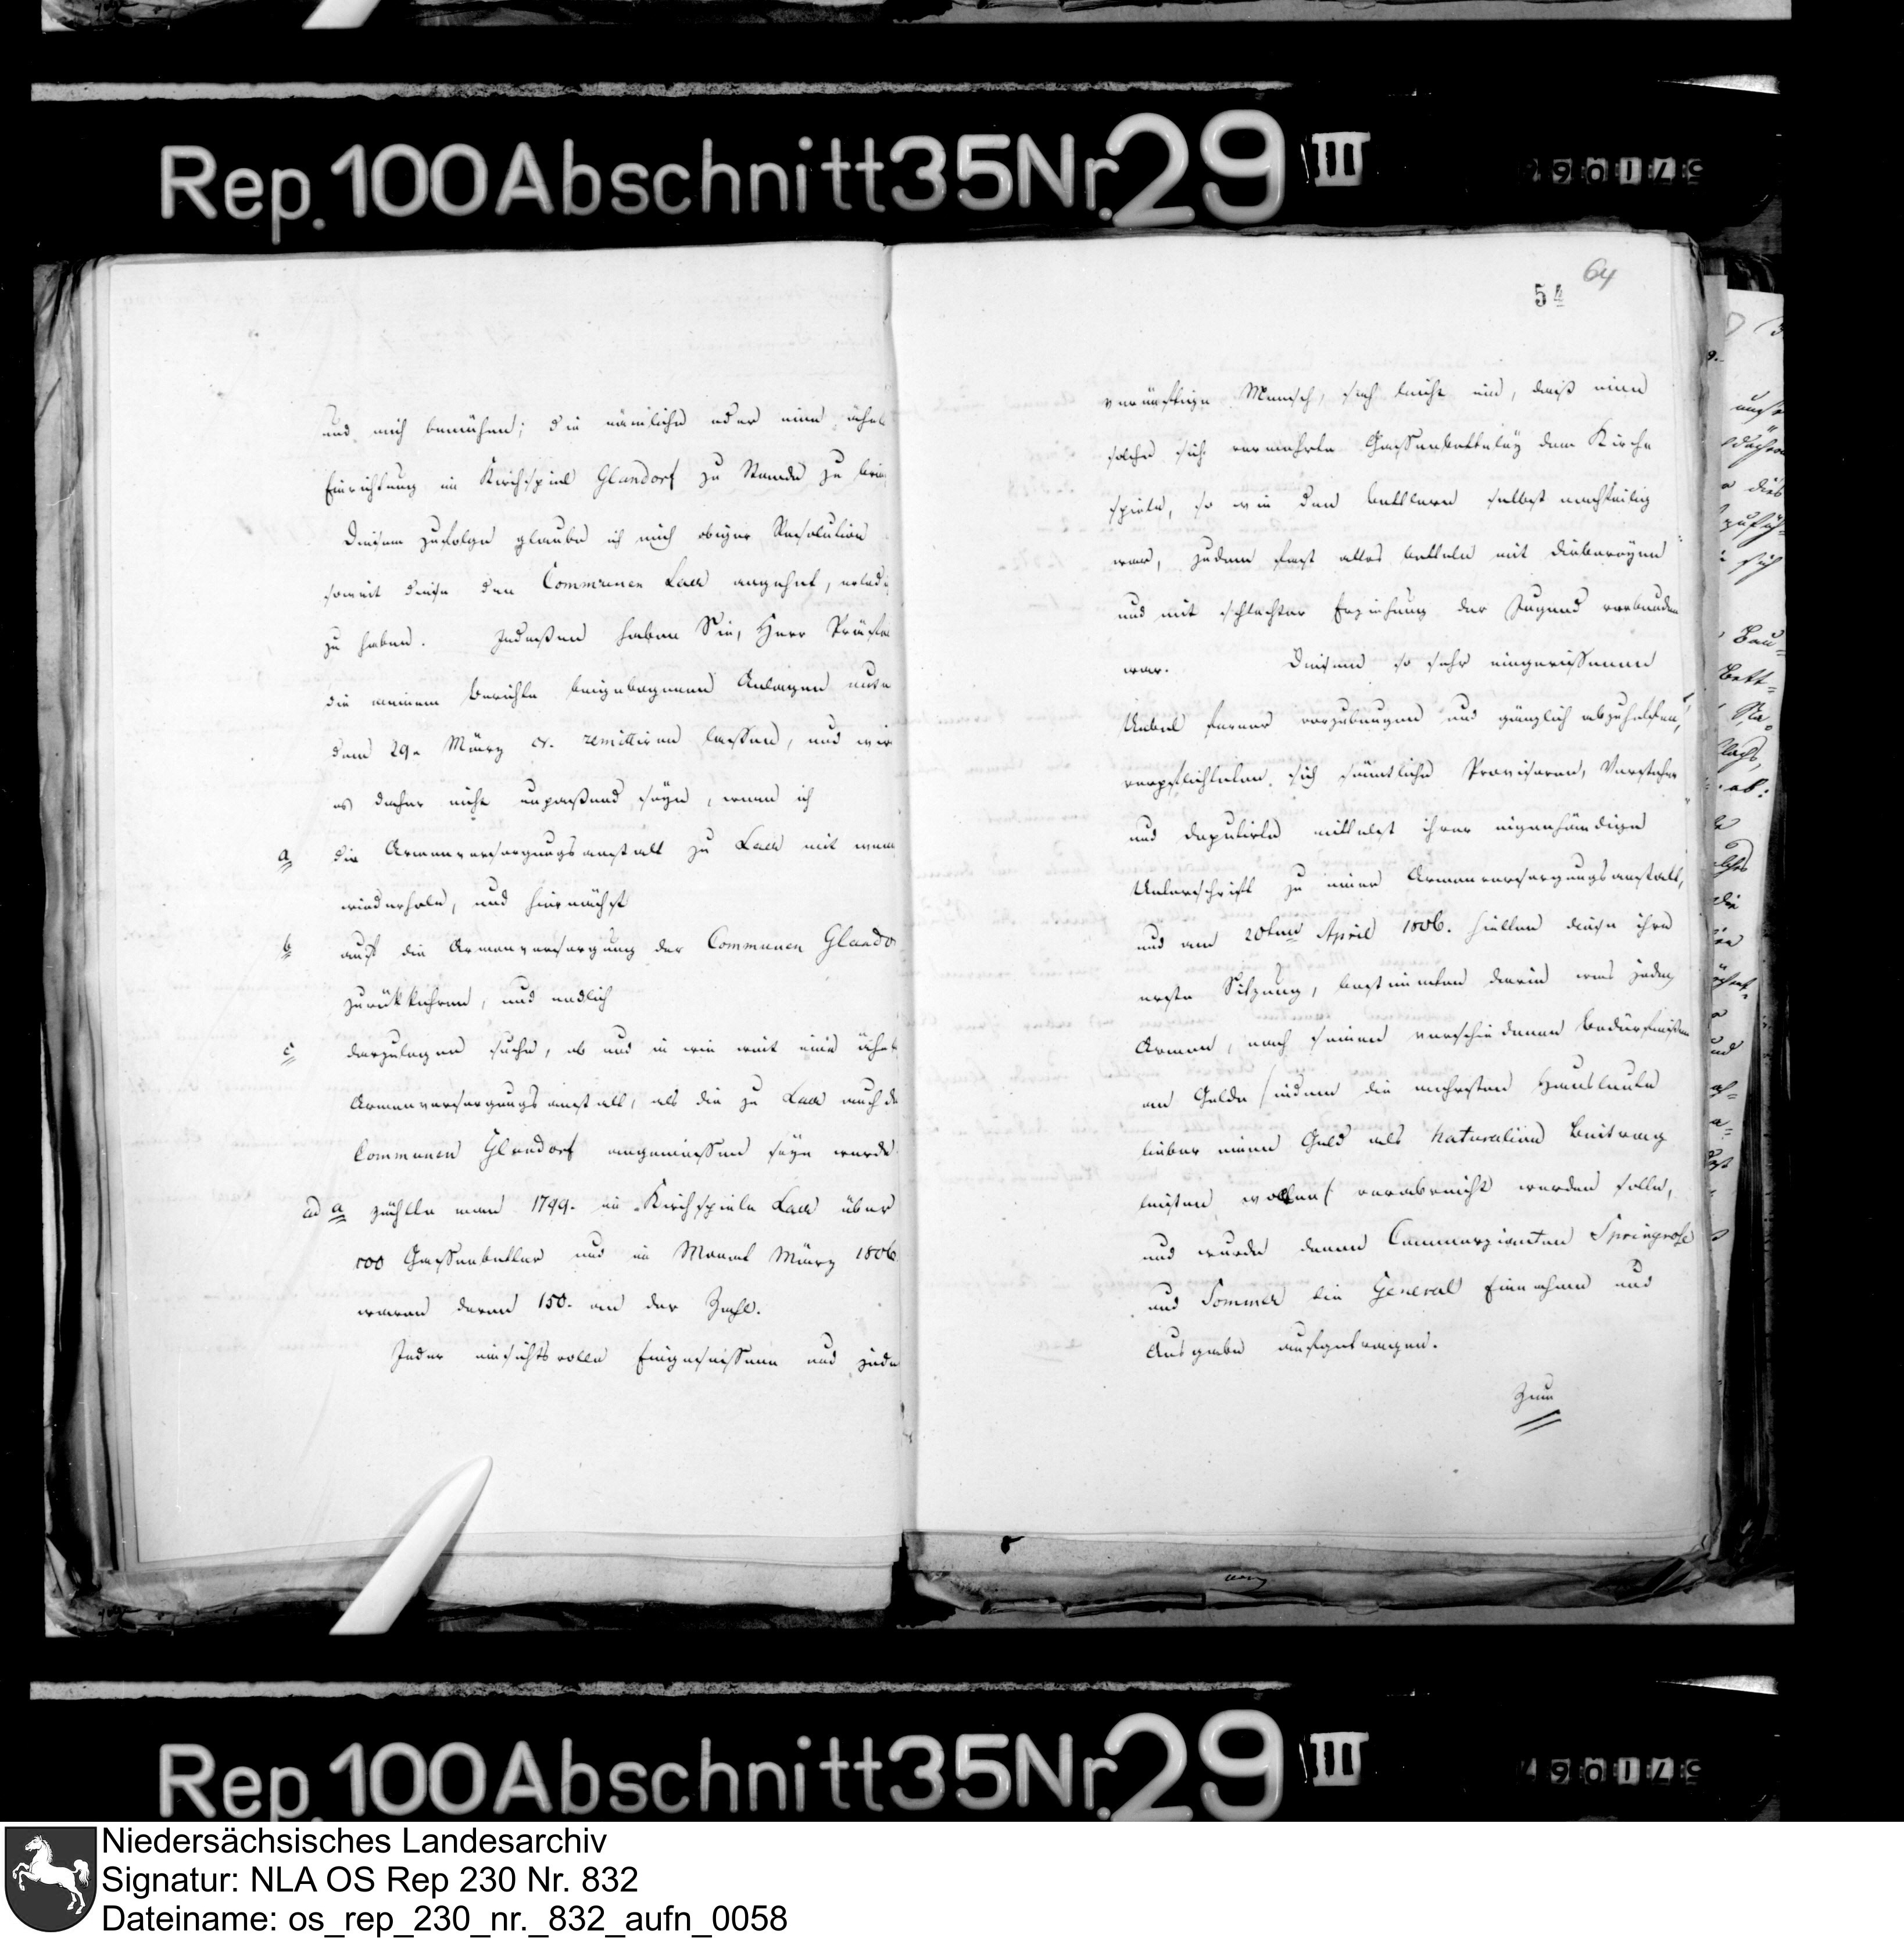 Rep. 100 Abschnitt 35 Nr. 29 III
und mich bemühen; die nämliche oder eine ähnl
Einrichtung im Kirchspiel Glandorf zu Stande zu brin
Diesem zufolge glaube ich mich obiger Resolution
soweit diese den Communen Laer angehet, erledi
zu haben. Indeßen haben Sie, Herr Präfe
die meinem Berichte beigebogenen Anlagen
dem 29n März cr. remittiren lassen, und wir
es daher nicht unpaßend seyn, wenn ich
a die Armenversorgungsanstalt zu Laer mit
wiederhole, und hiernächst
b auf die Armenversorgung der Communen Glando
zurükkehren, und endlich
c darzulegen suche, ob und in wie weit eine ähnl
Armenversorgungsanstalt, als die zu Laer auch de
Communen Glandorf angemessen seyn werde
ad a zählte man 1799. im Kirchspiele Laer über
100 Gassenbettler und im Monat März 1806
waren deren 150. an der Zahl.
Jeder einsichtsvolle Eingesessene und jede
64
54
vernünftige Mensch, sah leicht ein, daß eine
solche sich vermehrte Gassenbetteley dem Kirch
spiele, so wie den bettlern selbst nachtheilig
war, zudem fast alles betteln mit diebereyen
und mit schlechter Erziehung der Jugend verbunden
war. Diesem so sehr eingerissenen
Uebel ferner vorzubeugen und gänzlich abzuhelfen,
verpflichteten sich sämtliche Provisoren, Vorsteher
und deputirte mittelst ihrer eigenhändigen
Unterschrift zu einer Armenversorgungsanstalt,
und am 20ten April 1806. hielten diese ihre
erste Sitzung, bestimmten darin was jedem
Armen, nach seinen verschiedenen Bedürfnißen
an Gelde /indem die mehrsten Hausleute
lieber einen Geld als Naturalien Beitrag
leisten wollen/ verabreicht werden solle,
und wurde denen Commerzianten Springrose
und Sommer die General Einnahme und
Ausgabe aufgetragen.
Zum
Rep. 100 Abschnitt 35 Nr. 29 III
Niedersächsisches Landesarchiv
Signatur: NLA OS Rep 230 Nr. 832
Dateiname: os_rep_230_nr._832_aufn_0058